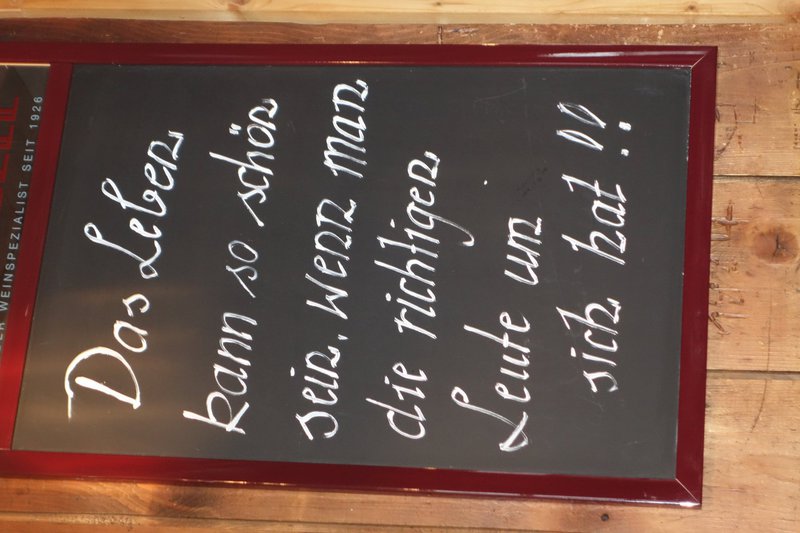 WEINSPEZIALIST SEIT 1926
Das Leben
kann so schön
sein, wenn man
die richtigen
Leute um
sich hat!!